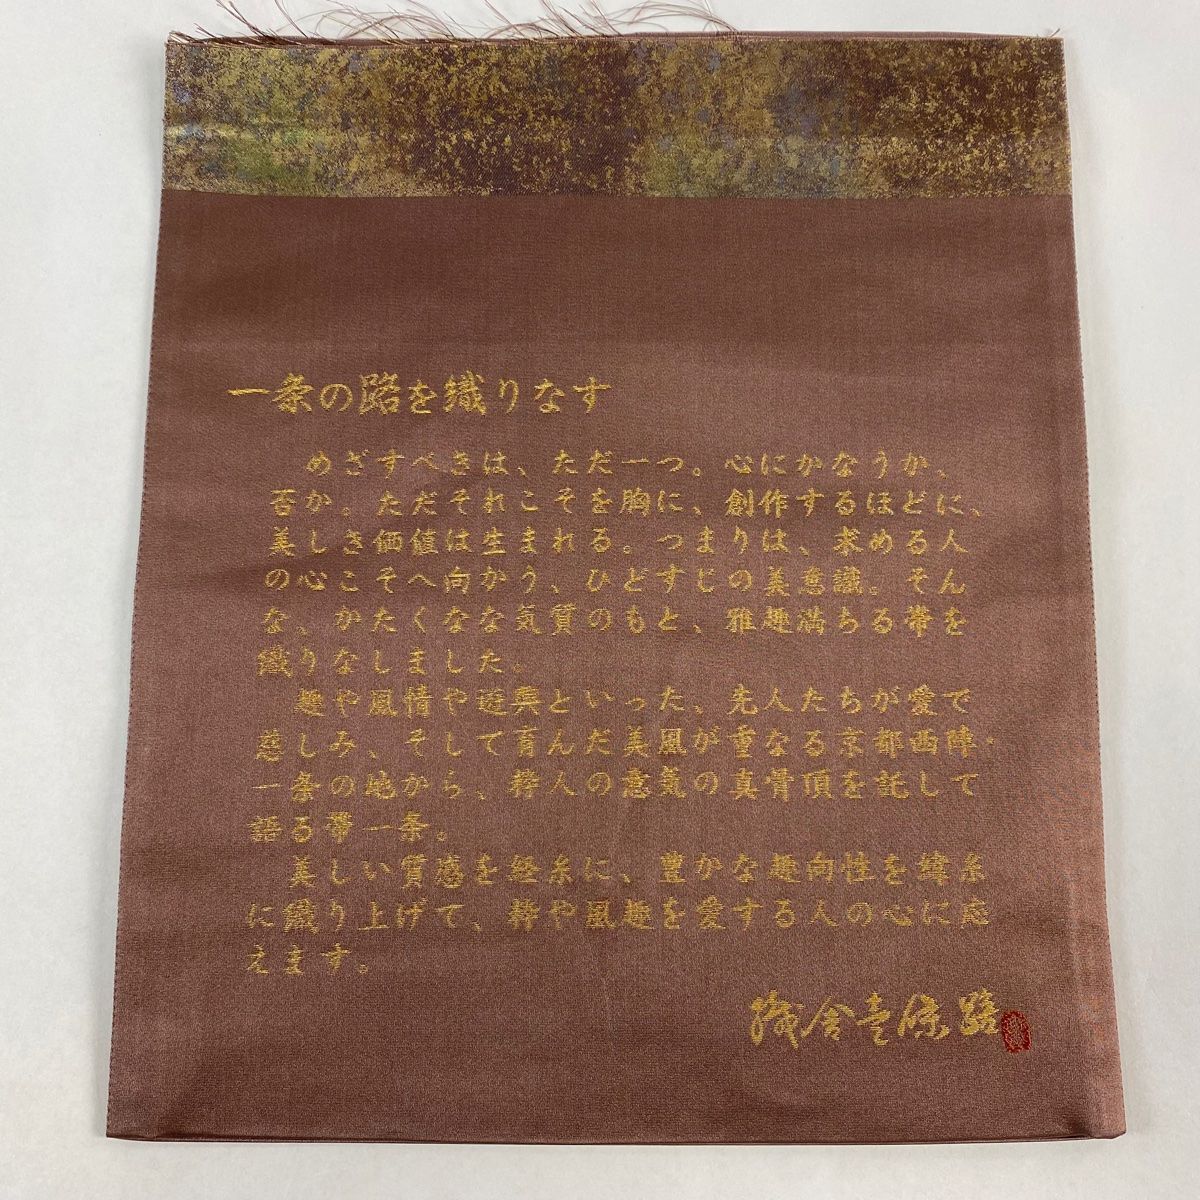 一条の路を織りなす
めざすべきは、ただ一つ。心にかなうか、
否か。ただそれこそを胸に、創作するほどに、
美しき価値は生まれる。つまりは、求める人
の心こそへ向かう、ひとすじの美意識。そん
な、かたくなな気質のもと、雅趣満ちる帯を
織りなしました。
趣や風情や遊興といった、先人たちが愛で
慈しみ、そして育んだ美風が重なる京都西陣・
一条の地から、粋人の意気の真骨頂を託して
語る帯一条。
美しい質感を経糸に、豊かな趣向性を緯糸
に織り上げて、粋や風趣を愛する人の心に応
えます。
織舎壱條路